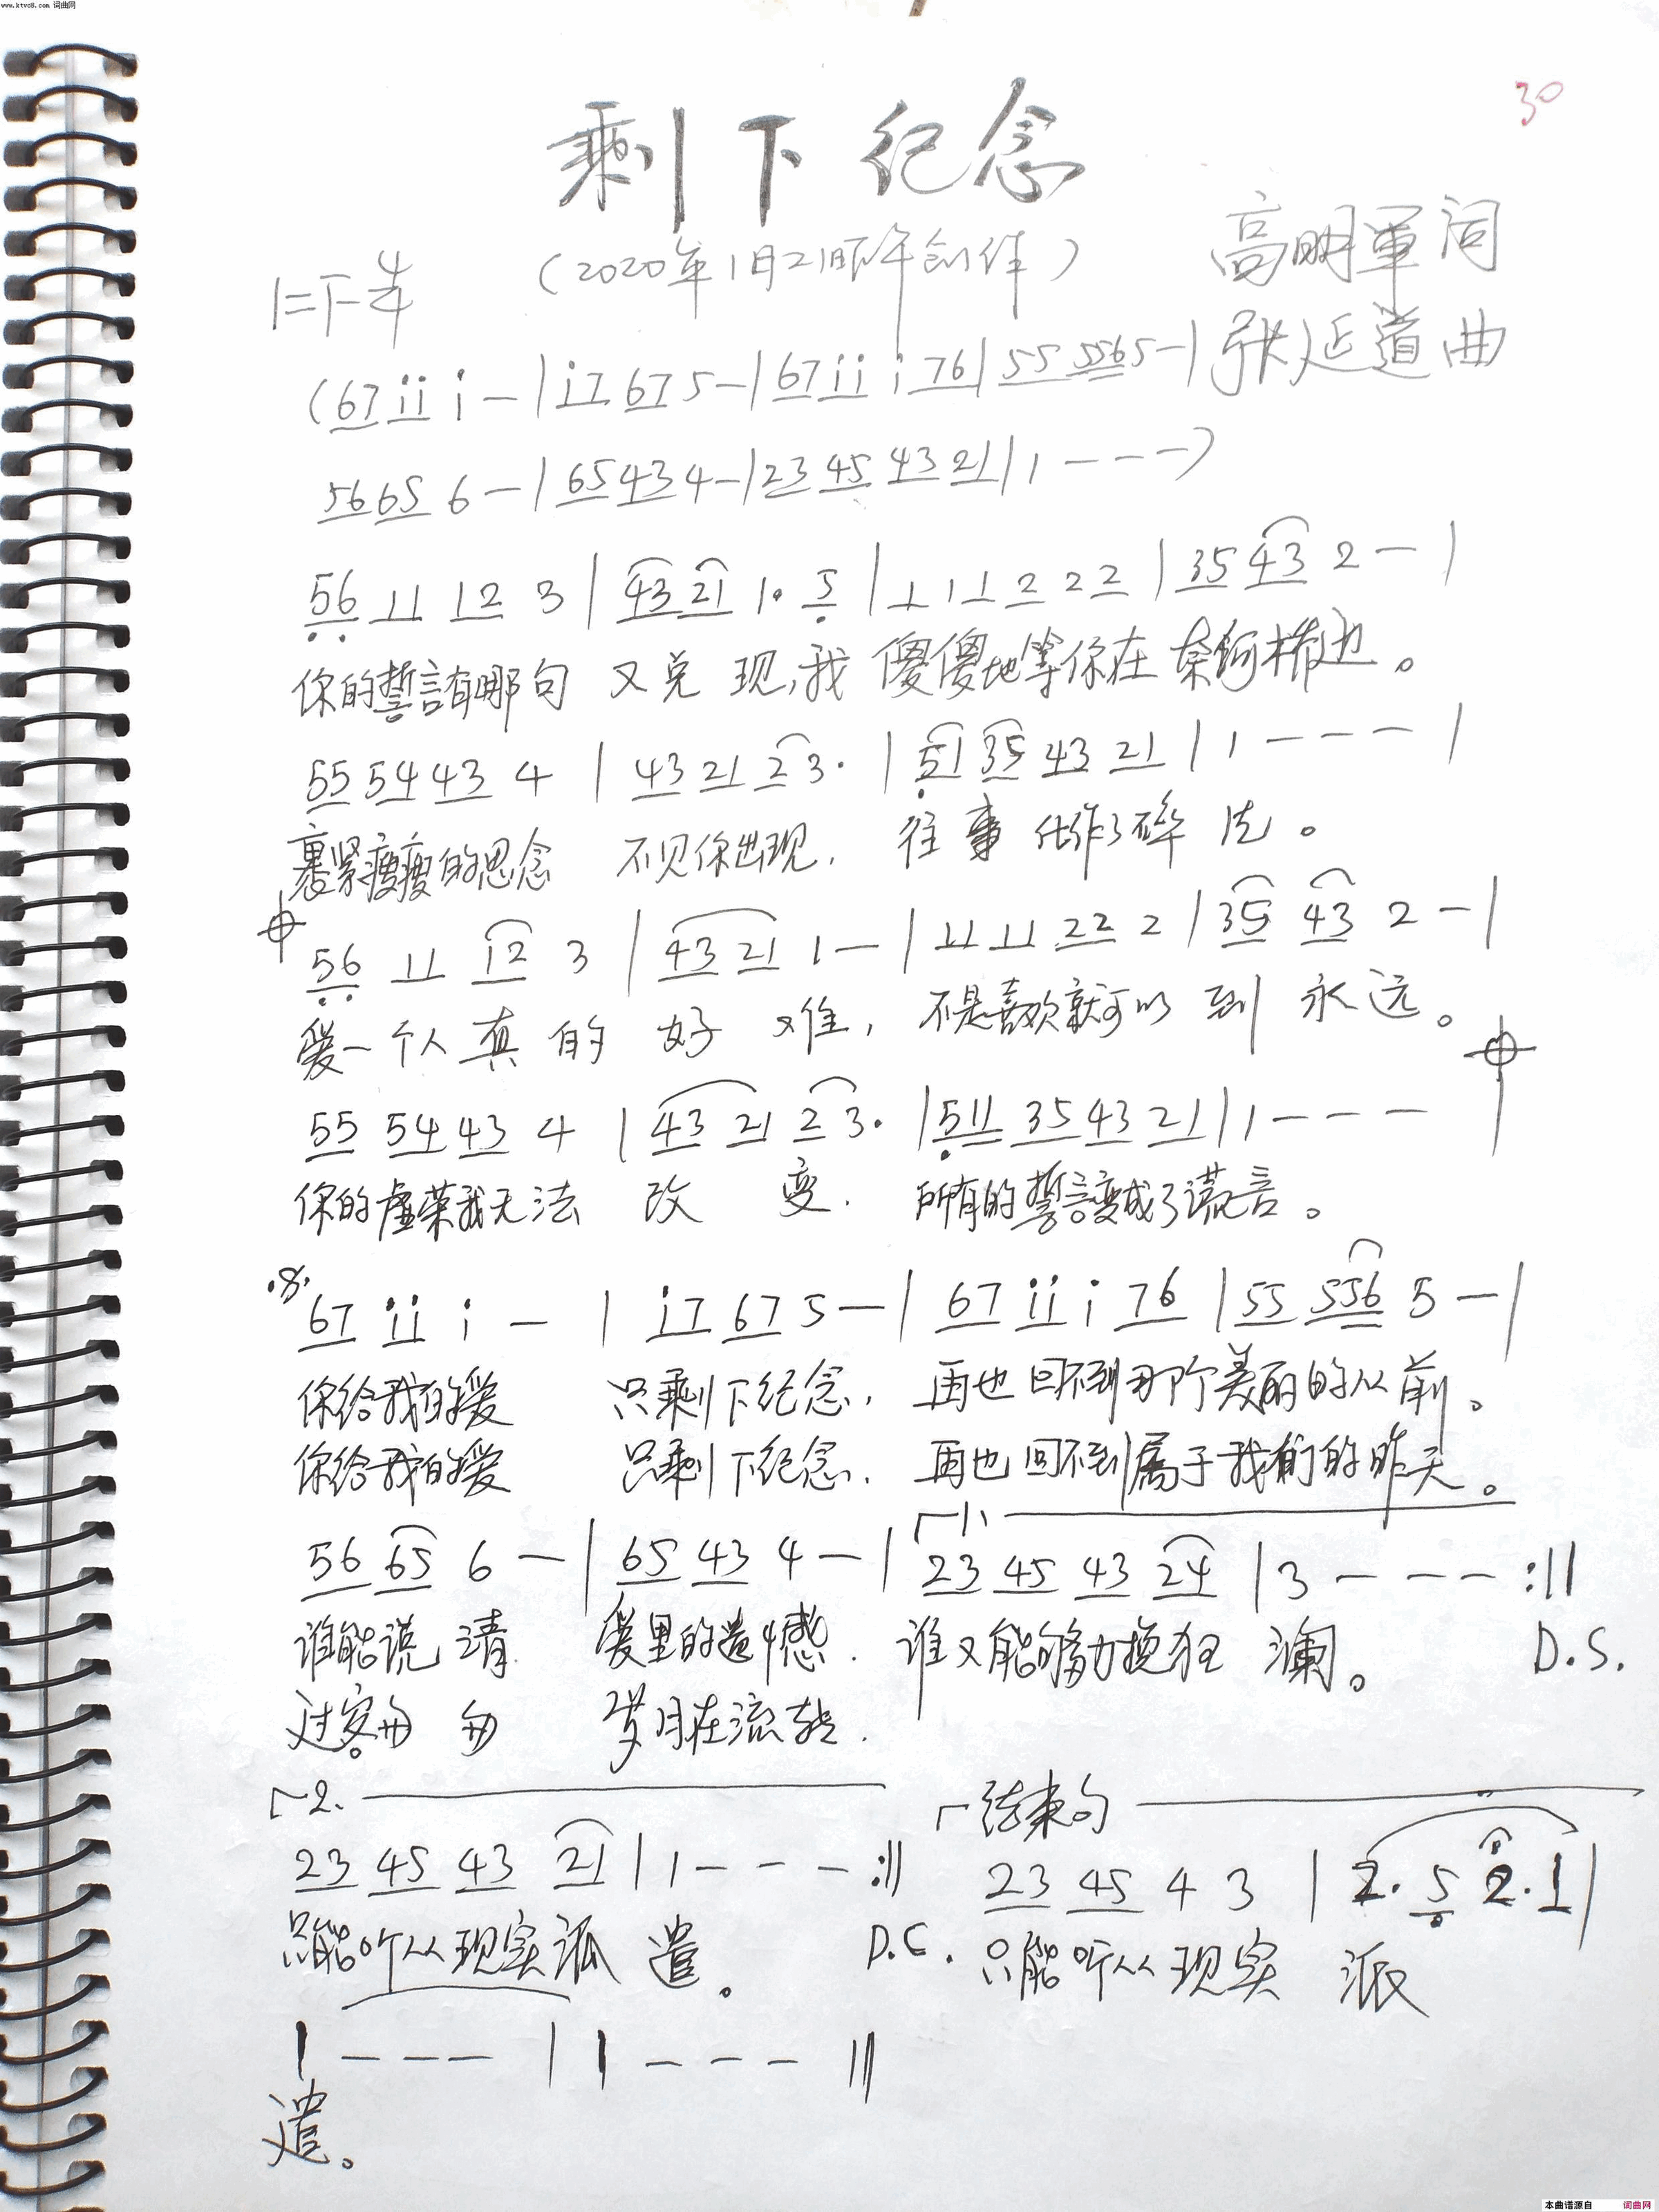 www.ktvc8.com 词曲网
30
剩下纪念
1=F 4/4 (2020年1月21日下午创作) 高明军词
张廷道曲
(67 ii i - | i7 67 5 - | 67 ii i 76 | 55 556 5 - |
56 65 6 - | 65 43 4 - | 23 45 43 21 | 1 - - - )
56 11 12 3 | 43 21 1. 5 | 1 11 2 22 | 35 43 2 - |
你的誓言有哪句 又兑 现,我 傻傻地等你在 奈何桥边。
55 54 43 4 | 43 21 2 3. | 51 35 43 21 | 1 - - - |
裹紧瘦瘦的思念 不见你出现. 往事 化作了碎 片。
56 11 12 3 | 43 21 1 - | 11 11 22 2 | 35 43 2 - |
爱一个人真的 好 难, 不是喜欢就可以 到 永远。
55 54 43 4 | 43 21 2 3. | 511 35 43 21 | 1 - - - |
你的虚荣我无法 改 变. 所有的誓言变成了谎言。
67 ii i - | i7 67 5 - | 67 ii i 76 | 55 556 5 - |
你给我的爱 只剩下纪念, 再也回不到那个美丽的从前。
你给我的爱 只剩下纪念. 再也回不到属于我们的昨天。
1.
56 65 6 - | 65 43 4 - | 23 45 43 24 | 3 - - - :||
谁能说清 爱里的遗憾. 谁又能够力挽狂 澜。 D.S.
过客匆匆 岁月在流转.
2. 结束句
23 45 43 21 | 1 - - - :|| 23 45 4 3 | 2. 5 2. 1 |
只能听从现实派 遣。 D.C. 只能听从现实 派
1 - - - | 1 - - - ||
遣。
本曲谱源自 词曲网